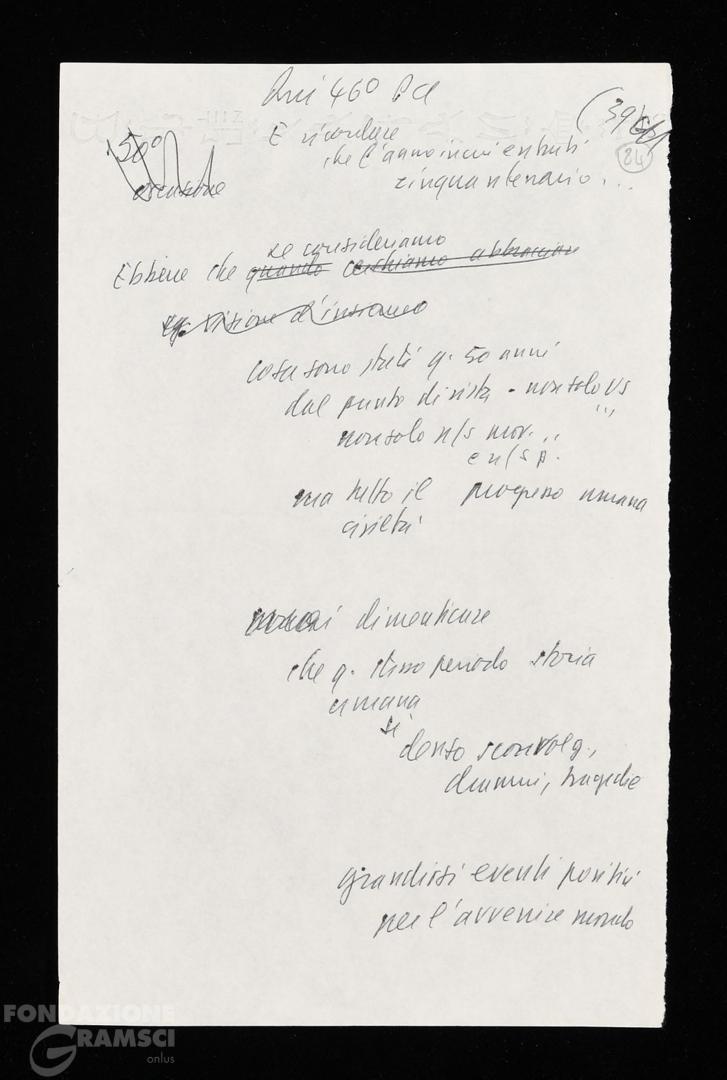 46° PCI
(39
24
50°
E ricordare
che l'anno in cui entrati
cinquantenario...
se consideriamo
Ebbene che quando cerchiamo abbracciare
visione d'insieme
cosa sono stati q. 50 anni
dal punto di vista - non solo US
non solo n/s mov.,,
e n/s p.
ma tutto il progresso umana
civiltà
dimenticare
che q. stesso periodo storia
umana
si
denso sconvolg.,
drammi, tragedie
grandissi eventi positivi
per l'avvenire mondo
FONDAZIONE
GRAMSCI
onlus